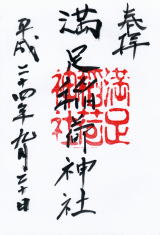 奉拝
満足稲荷神社
満足
稲荷
神社
平成二十四年九月二十日